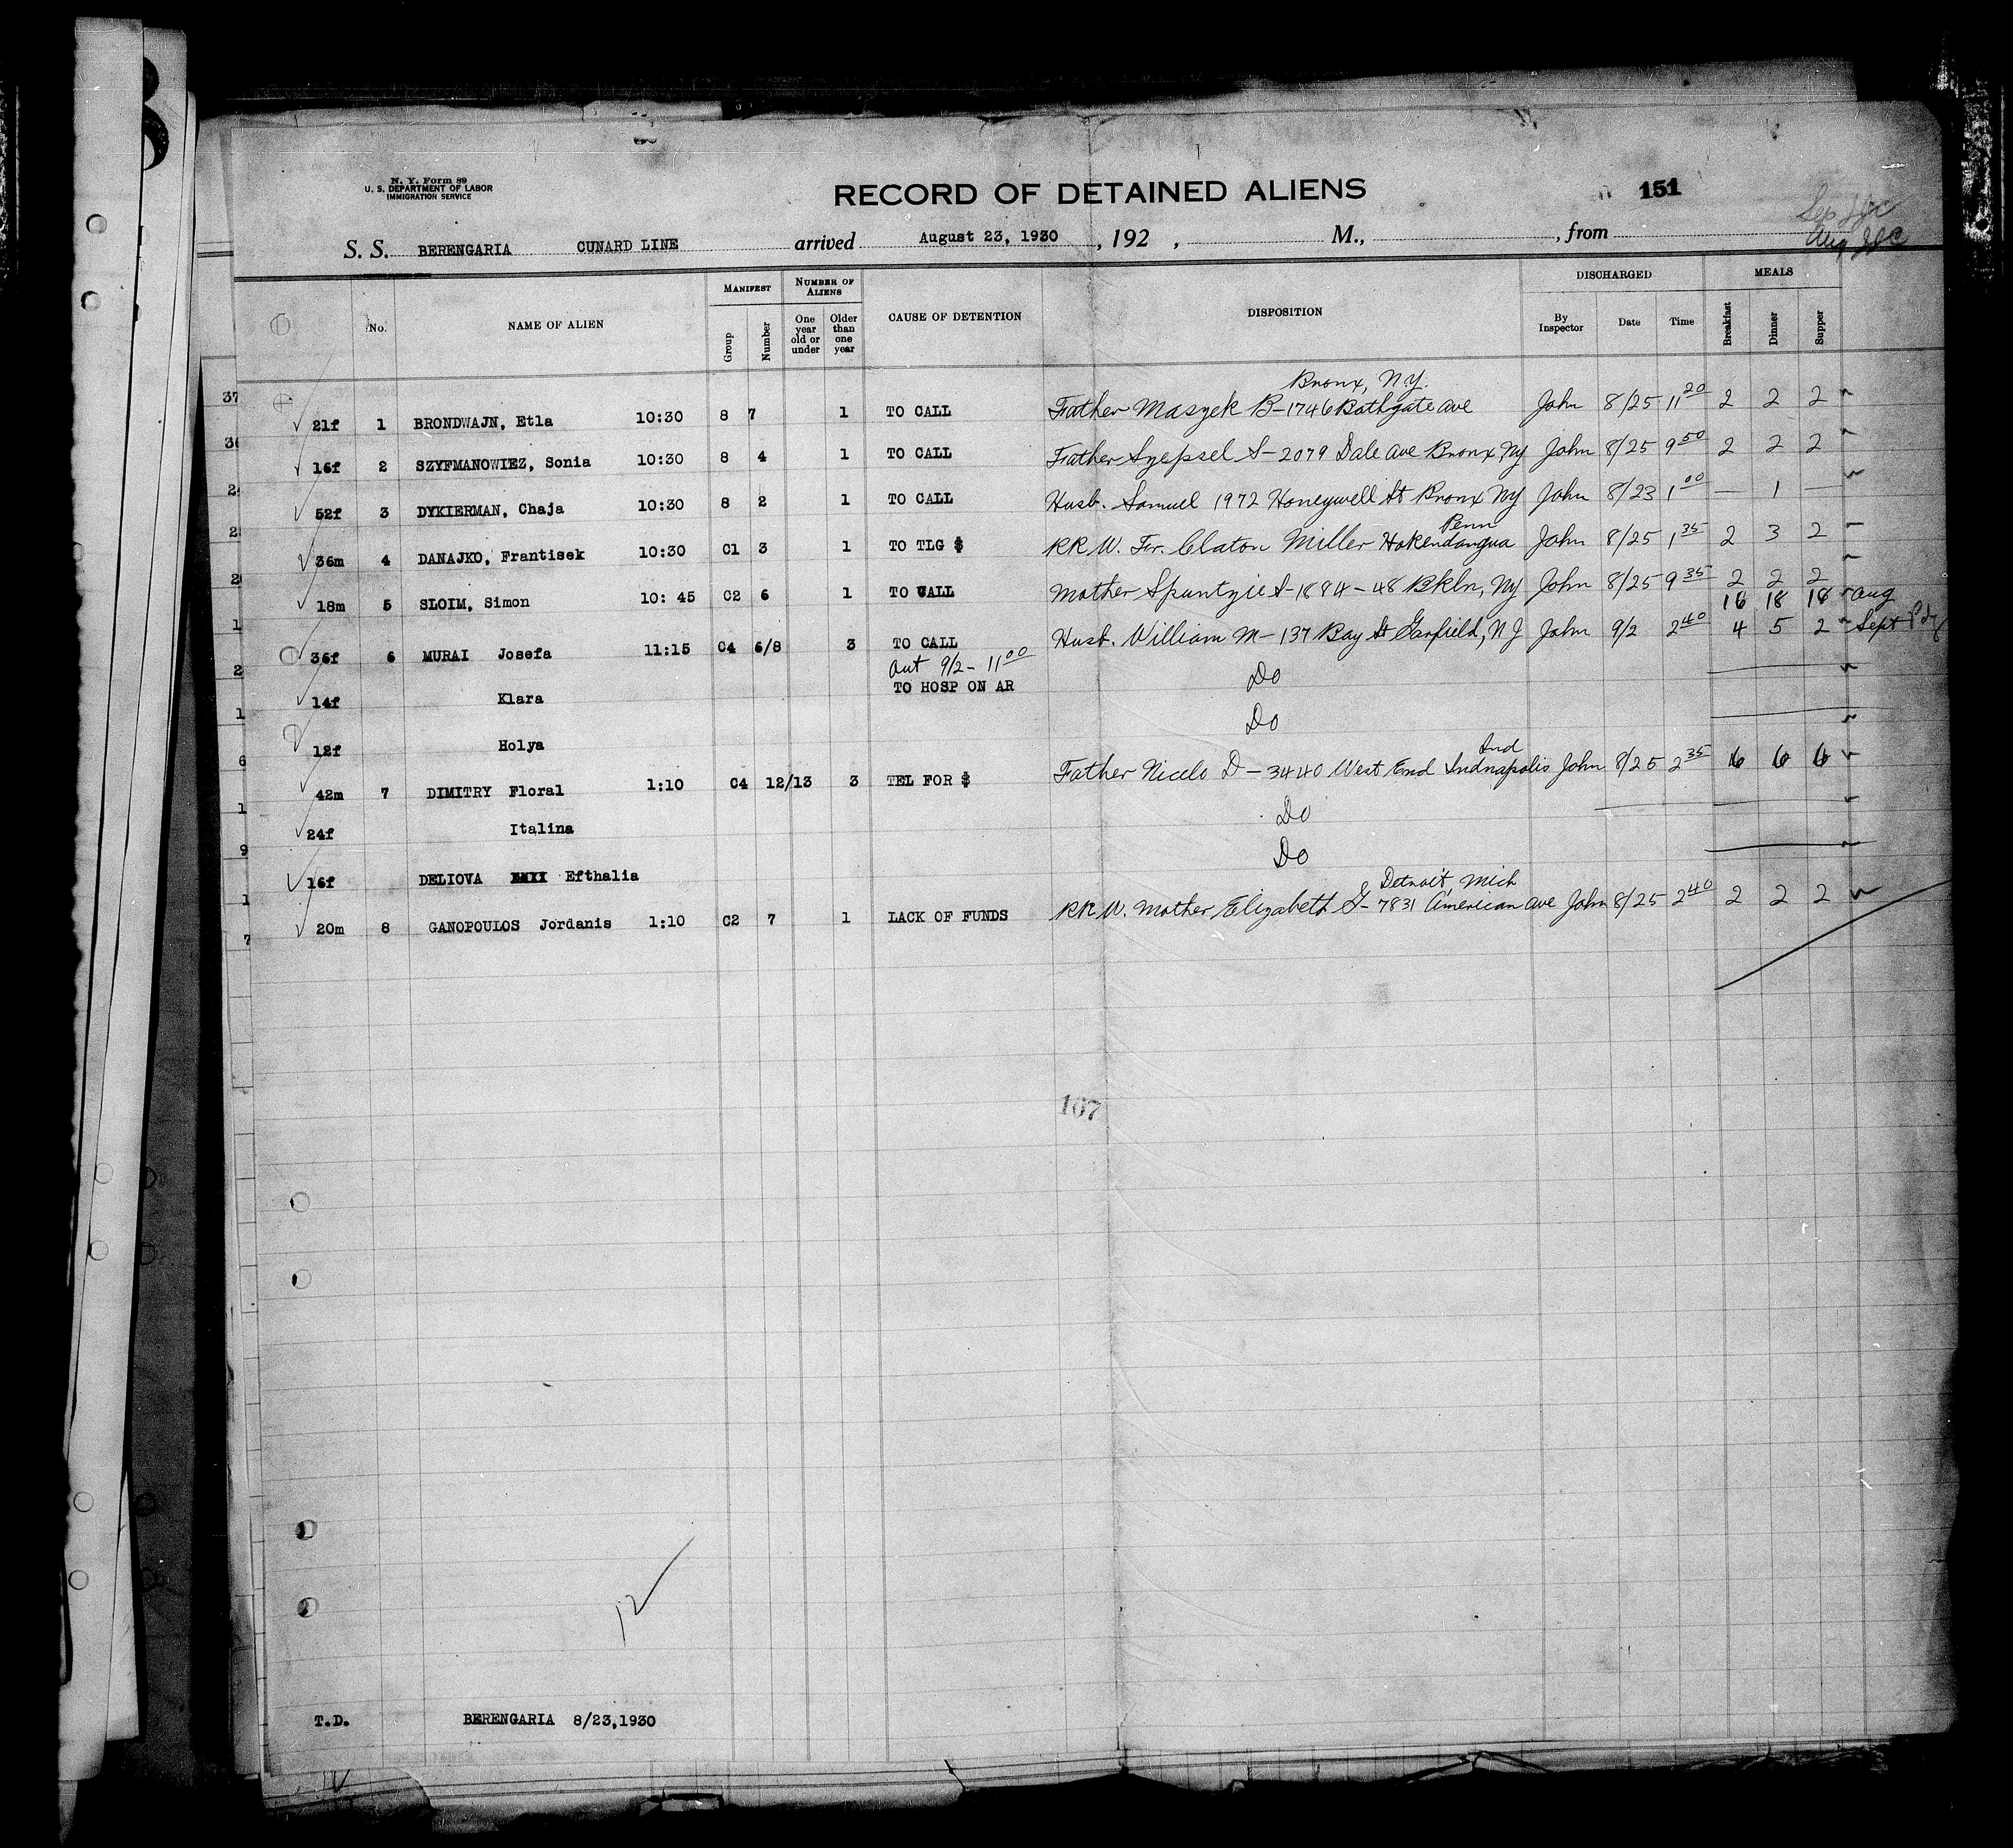 N. Y. Form 89
U. S. DEPARTMENT OF LABOR
IMMIGRATION SERVICE
RECORD OF DETAINED ALIENS
151
S. S. BERENGARIA CUNARD LINE arrived August 23, 1930, 192 , M., , from
Aug
No. NAME OF ALIEN MANIFEST Group Number NUMBER OF ALIENS One year old or under Older than one year CAUSE OF DETENTION DISPOSITION DISCHARGED By Inspector Date Time MEALS Breakfast Dinner Supper
Bronx, N.Y.
21f 1 BRONDWAJN, Etla 10:30 8 7 1 TO CALL Father Maszek B-1746 Bathgate Ave John 8/25 11 20 2 2 2
16f 2 SZYFMANOWIEZ, Sonia 10:30 8 4 1 TO CALL Father Szepsel S-2079 Dale Ave Bronx NY John 8/25 9 50 2 2 2
52f 3 DYKIERMAN, Chaja 10:30 8 2 1 TO CALL Husb. Samuel 1972 Honeywell St Bronx NY John 8/23 1 00 — 1 —
Penn
36m 4 DANAJKO, Frantisek 10:30 C1 3 1 TO TLG $ RR W. Fr. Claton Miller Hokendangua John 8/25 1 35 2 3 2
18m 5 SLOIM, Simon 10: 45 C2 6 1 TO CALL Mother Spuntzie S-1884-48 Bkln, NY John 8/25 9 35 2 2 2
16 18 18 Aug
36f 6 MURAI Josefa 11:15 C4 6/8 3 TO CALL Husb. William M-137 Bay St Garfield, NJ John 9/2 2 40 4 5 2 Sept
Out 9/2- 11 00
14f Klara TO HOSP ON AR Do
12f Holya Do
Ind
42m 7 DIMITRY Floral 1:10 C4 12/13 3 TEL FOR $ Father Nicolo D-3440 West End Indnapolis John 8/25 2 35 6 6 6
24f Italina Do
16f DELIOVA Efthalia Do
Detroit, Mich
20m 8 GANOPOULOS Jordanis 1:10 C2 7 1 LACK OF FUNDS RR W. Mother Elizabeth G-7831 American Ave John 8/25 2 40 2 2 2
107
12
T.D. BERENGARIA 8/23,1930